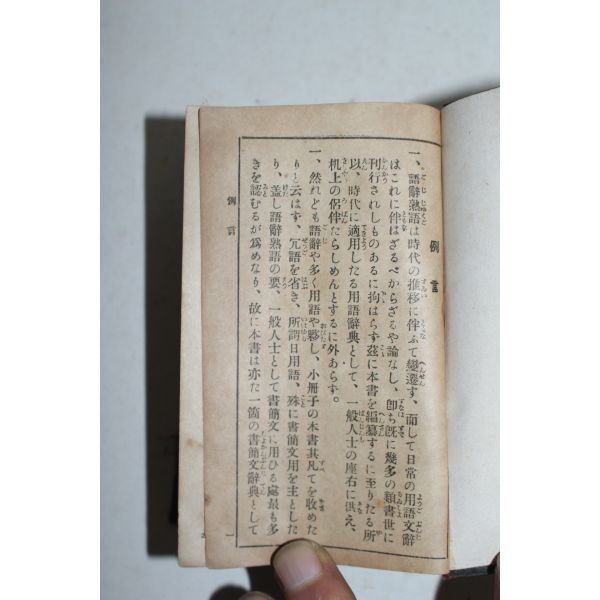 例言
一、語辭熟語は時代の推移に伴ふて變遷す、而して日常の用語文辭
はこれに伴はざるべからざるや論なし、卽ち旣に幾多の類書世に
刊行されしものあるに拘はらず茲に本書を編纂するに至りたる所
以、時代に適用したる用語辭典として、一般人士の座右に供え、
机上の侶伴たらしめんとするに外あらず。
一、然れども語辭や多く用語や夥し、小册子の本書其凡てを收めた
りと云はず、冗語を省き、所謂日用語、殊に書簡文用を主とした
り、蓋し語辭熟語の要、一般人士として書簡文に用ひる處最も多
きを認むるが爲めなり、故に本書は亦た一箇の書簡文辭典として
例言
一